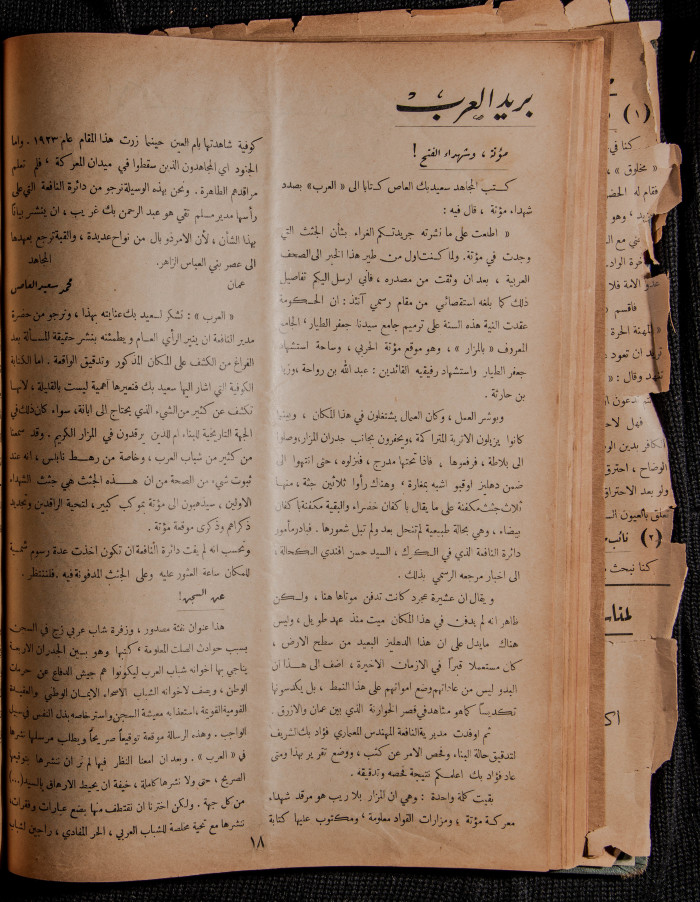 بريد العرب
مؤتة ، وشهداء الفتح !
كتب المجاهد سعيد بك العاص كتابا الى « العرب » بصدد
شهداء مؤتة ، قال فيه :
« اطلعت على ما نشرته جريدتكم الغراء بشأن الجثث التي
وجدت في مؤتة. ولما كنت اول من طير هذا الخبر الى الصحف
العربية ، بعد ان وثقت من مصدره ، فأني ارسل اليكم تفاصيل
ذلك كما بلغه استقصائي من مقام رسمي آنئذ : ان الحكومة
عقدت النية هذه السنة على ترميم جامع سيدنا جعفر الطيار الجامع
المعروف « بالمزار » ، وهو موقع مؤتة الحربي ، وساحة استشهاد
جعفر الطيار واستشهاد رفيقيه القائدين : عبد الله بن رواحة ،وزيد
بن حارثة .
وبوشر العمل ، وكان العمال يشتغلون في هذا المكان ، وبينما
كانوا يزيلون الاتربة المتراكمة ،ويحفرون بجانب جدران المزار،وصلوا
الى بلاطة ، فرفعوها ، فاذا تحتها مدرج ، فنزلوه ، حتى انتهوا الى
ضمن دهليز اوقبو اشبه بمغارة . وهناك رأوا ثلاثين جثة ، منها
ثلاث جثث مكفنة على ما يقال باكفان خضراء والبقية مكفنة باكفان
بيضاء ، وهي بحالة طبيعية لم تنحل بعد ولم تبل شعورها . فبادر مأمور
دائرة النافعة الذي في الكرك ، السيد حسن افندي الكحالة ،
الى اخبار مرجعه الرسمي بذلك .
و يقال ان عشيرة مجرد كانت تدفن موتاها هنا ، ولكن
ظاهر انه لم يدفن في هذا المكان ميت منذ عهد طويل ، وليس
هناك مايدل على ان هذا الدهليز البعيد من سطح الارض ،
كان مستعملا قبرًا في الازمان الاخيرة ، اضف الى هذا ان
البدو ليس من عاداتهم وضع امواتهم على هذا النمط ، بل يكدسونها
تكديسا كما هو مشاهد في قصر الخوارنة الذي بين عمان والازرق .
ثم اوفدت مديرية النافعة المهندس المعماري فؤاد بك لتشريف
لتدقيق حالة البناء وفحص الامر عن كثب ، ووضع تقرير بهذا ومتى
عاد فؤاد بك اعلمكم نتيجة فحصه وتدقيقه .
بقيت كلمة واحدة : وهي ان المزار بلا ريب هو مرقد شهداء
معركة مؤتة ، ومزارات القواد معلومة ، ومكتوب عليها كتابة
كوفية شاهدتها بام العين حينما زرت هذا المقام عام ١٩٢٣ . واما
الجنود اي المجاهدون الذين سقطوا في ميدان المعركة ، فلم تعلم
مراقدهم الطاهرة . ونحن بهذه الوسيلة نرجو من دائرة النافعة التي على
رأسها مدير مسلم تقي هو عبد الرحمن بك غريب ، ان ينشر بيانًا
بهذا الشأن ، لأن الامر ذو بال من نواح عديدة ، والقبة ترجع بعهدها
الى عصر بني العباس الزاهر. المجاهد
عمان محمد سعيد العاص
« العرب » : نشكر لسعيد بك عنايته بهذا ، ونرجو من حضرة
مدير النافعة ان ينير الرأي العام و يطمئنه بنشر حقيقة المسألة بعد
الفراغ من الكشف على المكان المذكور وتدقيق الواقعة . اما الكتابة
الكوفية التي اشار اليها سعيد بك فنعيرها أهمية ليست بالقليلة ، لانها
تكشف عن كثير من الشيء الذي يحتاج الى ابانة، سواء كان ذلك في
الجهة التاريخية للبناء ام للذين يرقدون في المزار الكريم . وقد سمعنا
من كثير من شباب العرب ، وخاصة من رهط نابلس ، انه عند
ثبوت شيء من الصحة من ان هذه الجثث هي جثث الشهداء
الاولين ، سيذهبون الى مؤتة بموكب كبير ، لتحية الراقدين وتجديد
ذكراهم وذكرى موقعة مؤتة .
ونحسب انه لم يفت دائرة النافعة ان تكون اخذت عدة رسوم شمسية
للمكان ساعة العثور عليه وعلى الجثث المدفونة فيه .فلننتظر .
عن السجن!
هذا عنوان نفثة مصدور ، وزفرة شاب عربي زج في السجن
بسبب حوادث الصلت المعلومة ، كتبها وهو بين الجدران الاربعة
يناجي بها اخوانه شباب العرب ليكونوا هم جيش الدفاع عن حرمات
الوطن ، ويصف لاخوانه الشباب الاصحاء الايمان الوطني والعقيدة
القومية القويمة ، استعذابه معيشة السجن واسترخاصه بذل النفس في سبيل
الواجب . وهذه الرسالة موقعة توقيعًا صريحًا ويطلب مرسلها نشرها
في « العرب » . وبعد ان امعنا النظر فيها لم نر ان ننشرها بتوقيعها
الصريح ، حتى ولا نشرها كاملة ، خيفة ان يحيط الارهاق بالسيد (...)
من كل جهة . ولكن اخترنا ان نقتطف منها بضع عبارات وفقرات،
ننشرها مع تحية مخلصة للشباب العربي ، الحر المفادي ، راجين لشباب
١٨
(١)
كنا في
« مخلوق » ،
فقام له
فاقسم
المهنة الحرة
(٢) نائب
كنا نبحث
لمناسـ